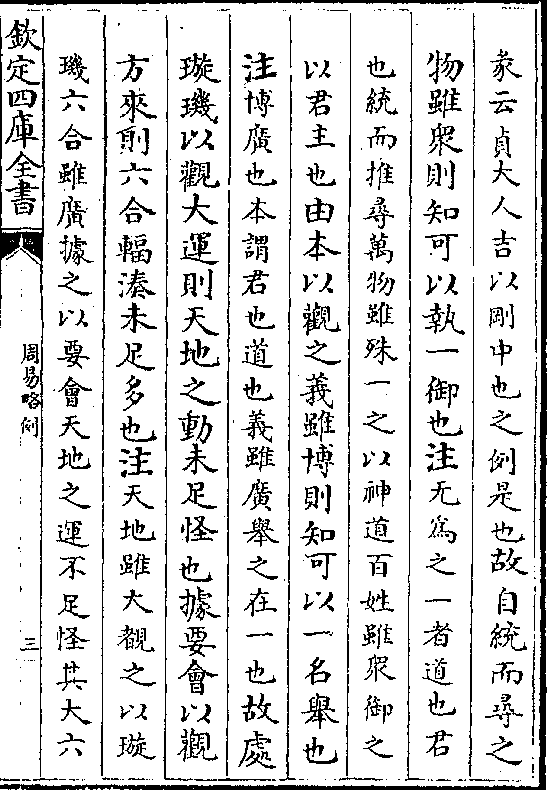 彖云貞大人吉以剛中也之例是也故自統而尋之
物雖衆則知可以執一御也注无為之一者道也君
也統而推尋萬物雖殊一之以神道百姓雖衆御之
以君主也由本以觀之義雖博則知可以一名舉也
注博廣也本謂君也道也義雖廣舉之在一也故處
璇璣以觀大運則天地之動未足怪也據要會以觀
方來則六合輻湊未足多也注天地雖大觀之以璇
璣六合雖廣據之以要會天地之運不足怪其大六
欽定四庫全書
周易略例
三